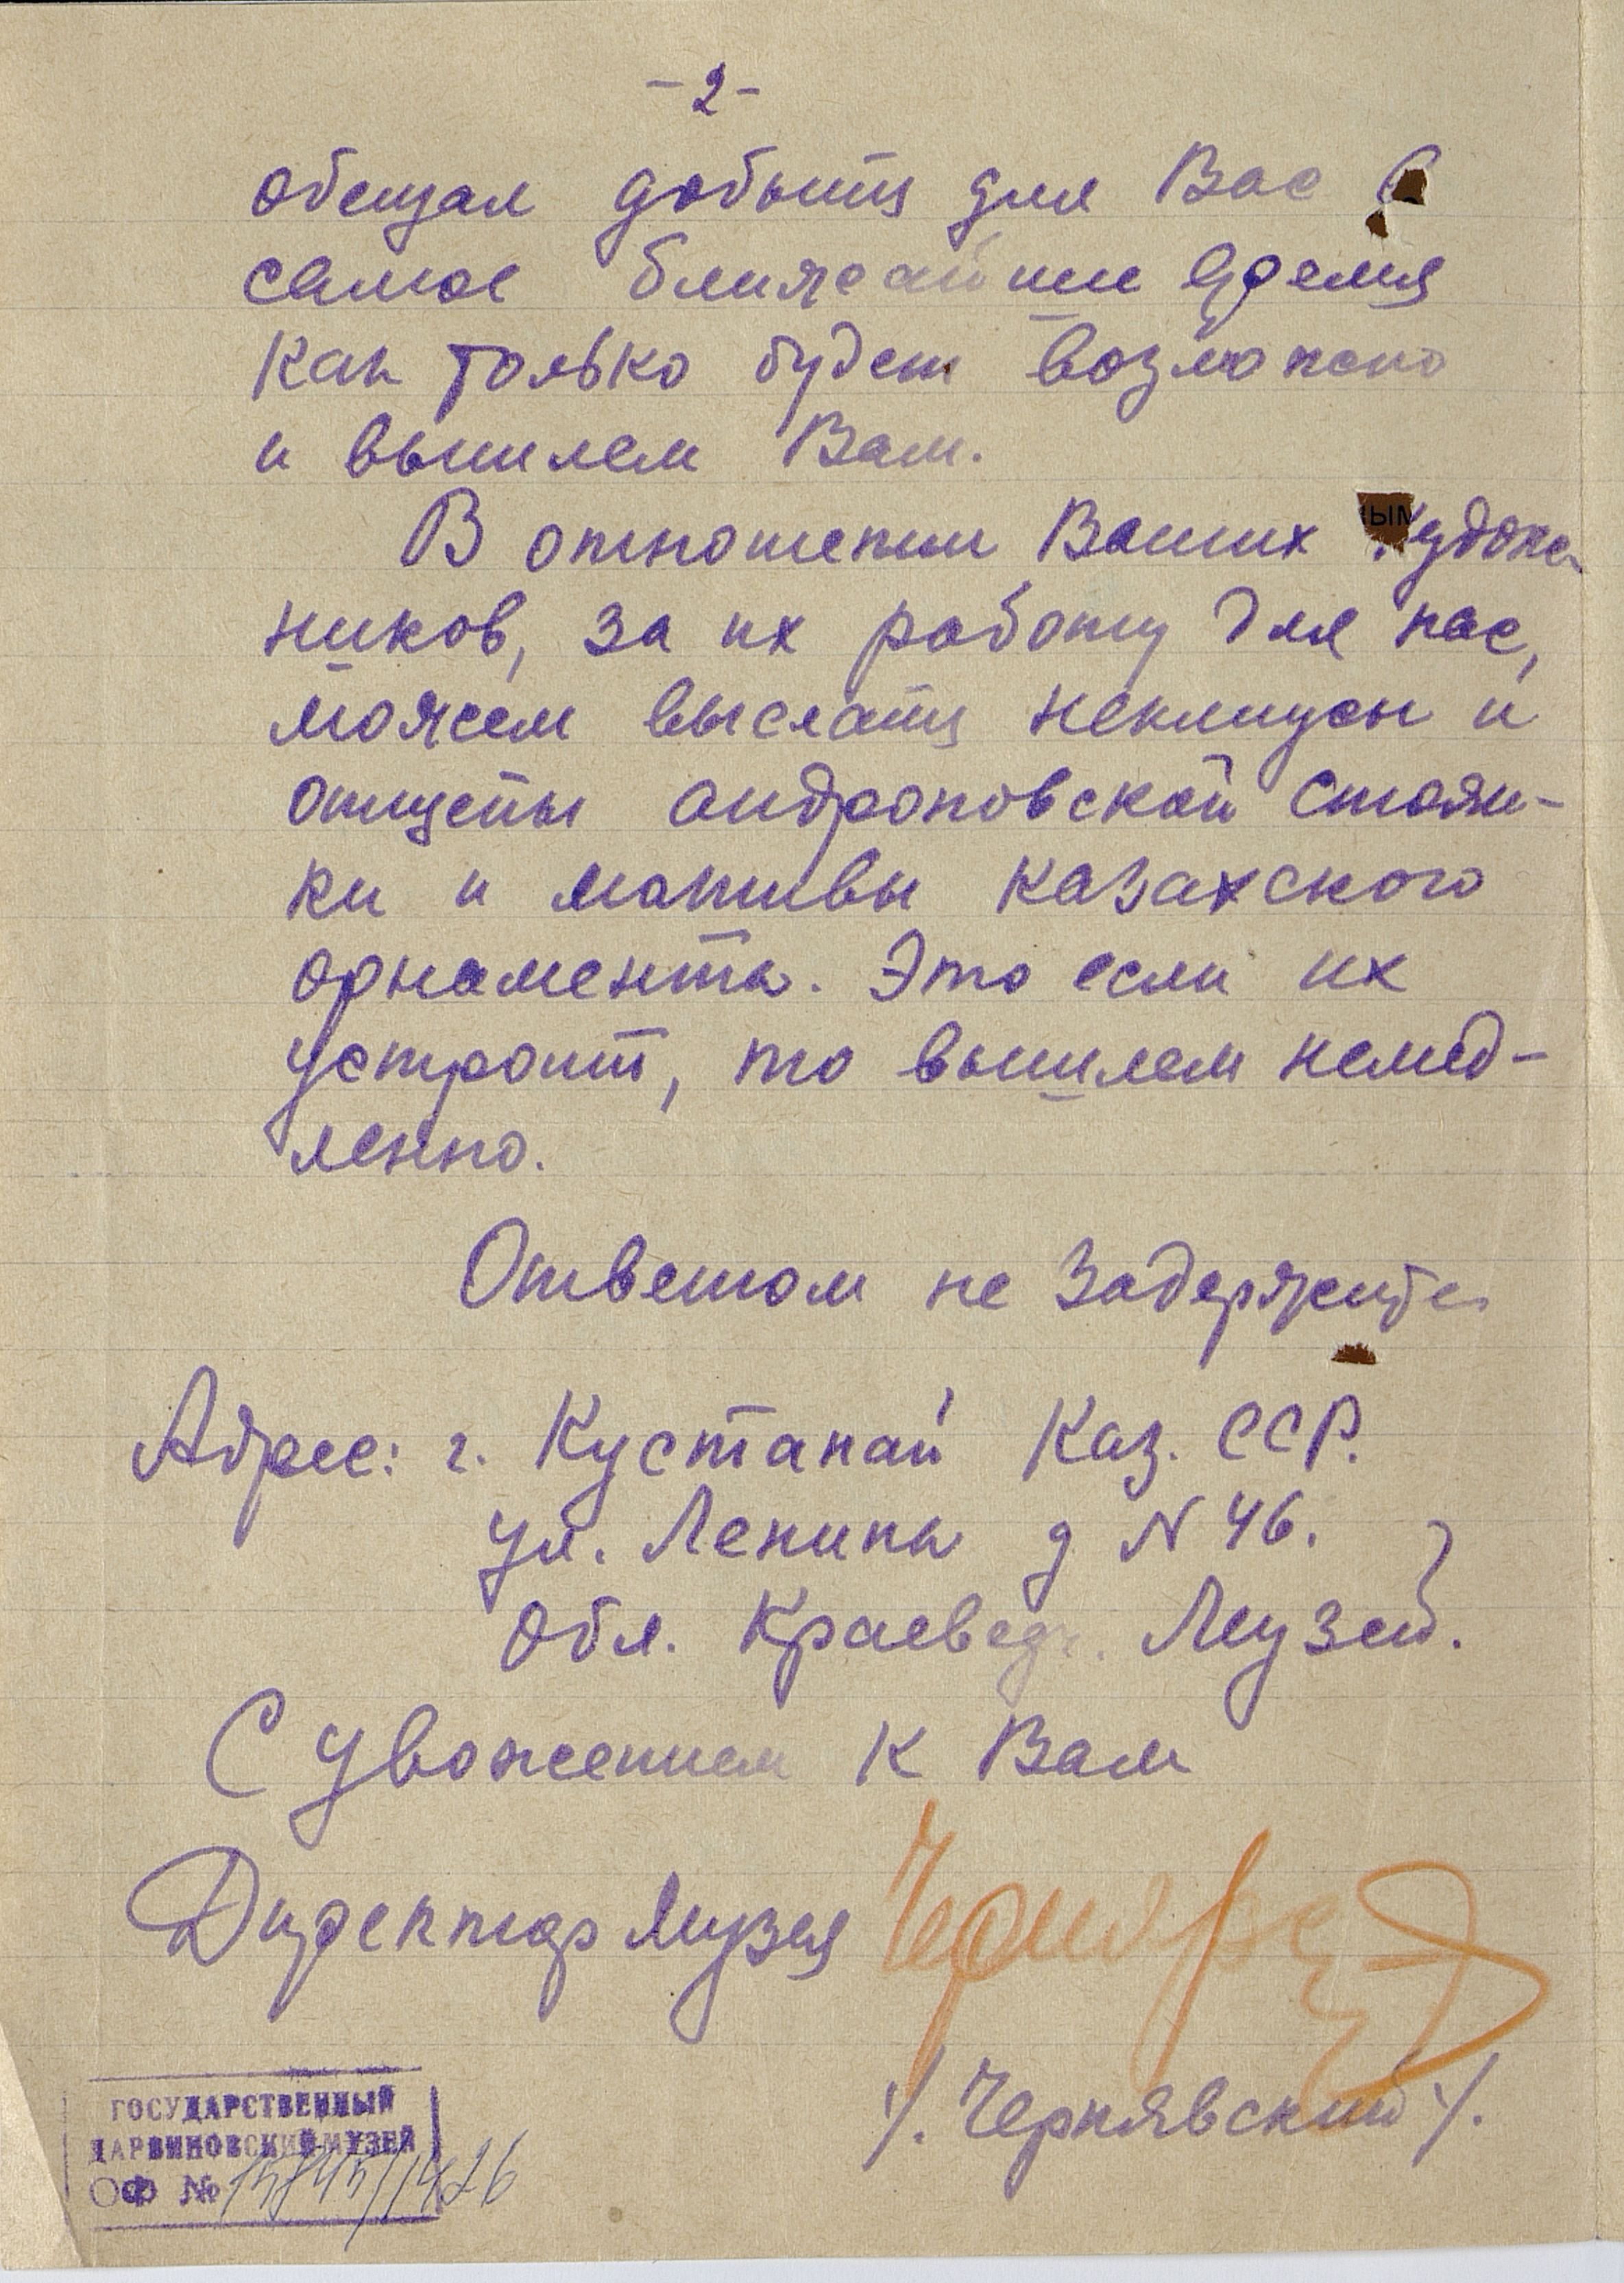 -2-
обещал добыть для Вас в
самое ближайшие время
как только будет возможно
и вышлем Вам.
В отношении Ваших худож
ников, за их работу для нас,
можем выслать и
андроновской стоян-
ки и мотивы казахского
орнамента. Это если их
устроит, то вышлем немед-
ленно.
Ответом не задержите
Адрес: г. Кустанай Каз. ССР.
ул. Ленина д N 46.
Обл. Краевед. Музей.
С уважением к Вам
Директор музея
/. Чернявский /.
ГОСУДАРСТВЕННЫЙ
ДАРВИНОВСКИЙ МУЗЕЙ
ОФ №